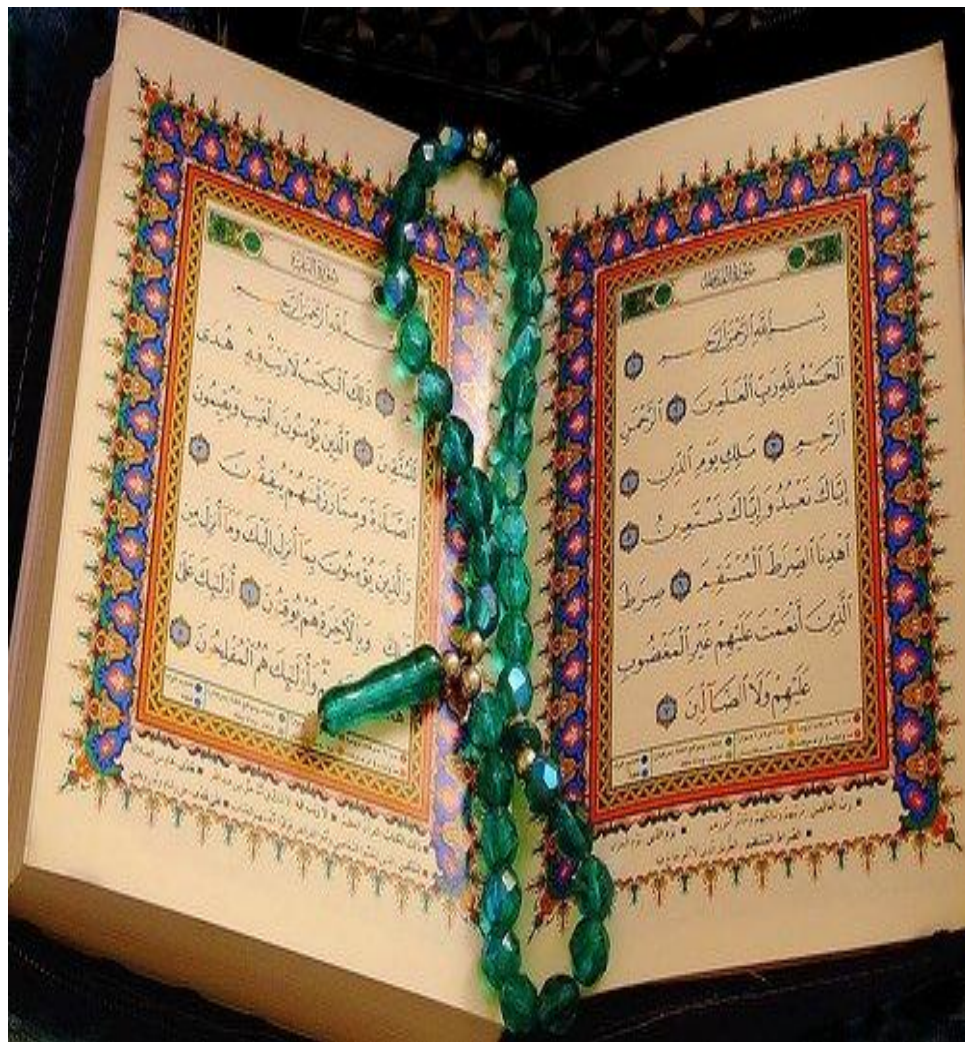 سُورَةُ الفَاتِحَةِ
بِسْمِ ٱللَّهِ ٱلرَّحْمَٰنِ ٱلرَّحِيمِ ١
ٱلْحَمْدُ لِلَّهِ رَبِّ ٱلْعَٰلَمِينَ ٢ ٱلرَّحْمَٰنِ
ٱلرَّحِيمِ ٣ مَٰلِكِ يَوْمِ ٱلدِّينِ ٤
إِيَّاكَ نَعْبُدُ وَإِيَّاكَ نَسْتَعِينُ ٥
ٱهْدِنَا ٱلصِّرَٰطَ ٱلْمُسْتَقِيمَ ٦ صِرَٰطَ
ٱلَّذِينَ أَنْعَمْتَ عَلَيْهِمْ غَيْرِ ٱلْمَغْضُوبِ
عَلَيْهِمْ وَلَا ٱلضَّآلِّينَ ٧
سُورَةُ البَقَرَةِ
بِسْمِ ٱللَّهِ ٱلرَّحْمَٰنِ ٱلرَّحِيمِ
١ ذَٰلِكَ ٱلْكِتَٰبُ لَا رَيْبَ فِيهِ هُدًى
لِّلْمُتَّقِينَ ٢ ٱلَّذِينَ يُؤْمِنُونَ بِٱلْغَيْبِ وَيُقِيمُونَ
ٱلصَّلَوٰةَ وَمِمَّا رَزَقْنَٰهُمْ يُنفِقُونَ ٣
وَٱلَّذِينَ يُؤْمِنُونَ بِمَآ أُنزِلَ إِلَيْكَ وَمَآ أُنزِلَ مِن
وَبِٱلْءَاخِرَةِ هُمْ يُوقِنُونَ ٤ أُو۟لَٰٓئِكَ عَلَىٰ
وَأُو۟لَٰٓئِكَ هُمُ ٱلْمُفْلِحُونَ ٥